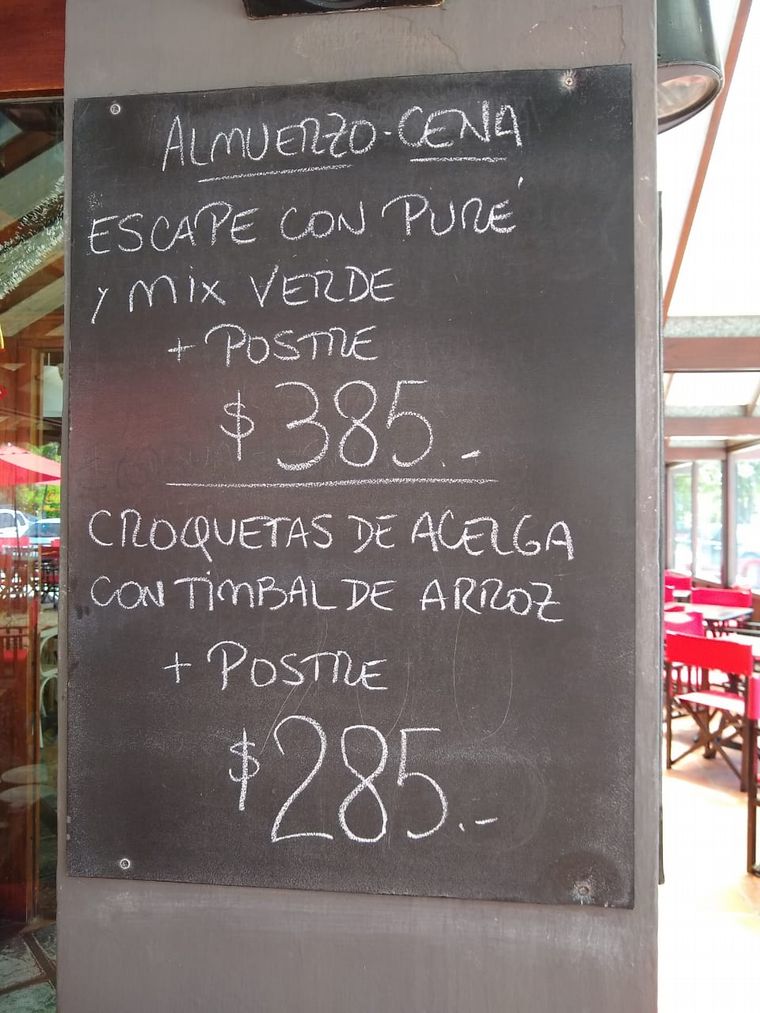 ALMUERZO-CENA
ESCAPE CON PURÉ
Y MIX VERDE
+ POSTRE
$385.-
CROQUETAS DE ACELGA
CON TIMBAL DE ARROZ
+ POSTRE
$285.-